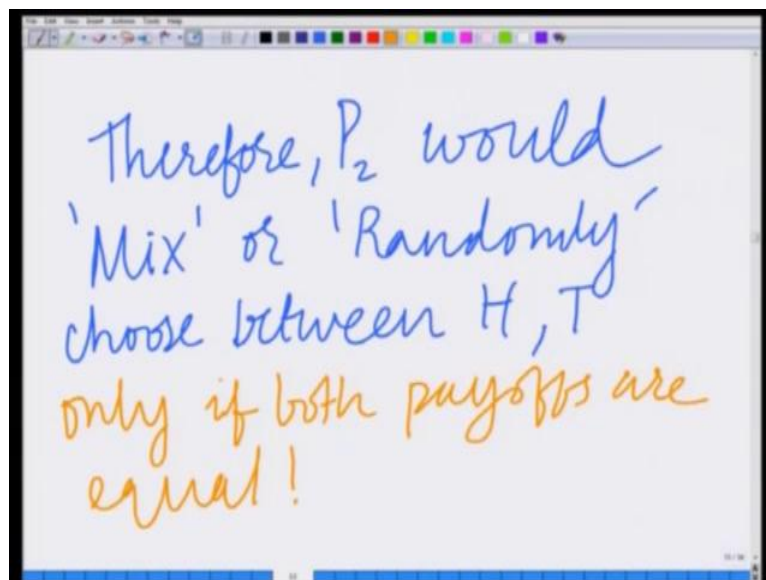 File Edit View Insert Actions Tools Help
Therefore, P₂ would
'Mix' or 'Randomly'
choose between H, T
only if both payoffs are
equal!